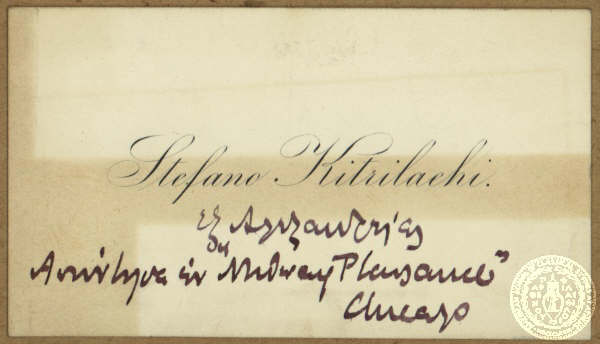 Stefano Kitrilachi.
ἐξ Ἀλεξανδρείας
Ἀπήντησα ἐν "Midway Plaisance"
Chicago